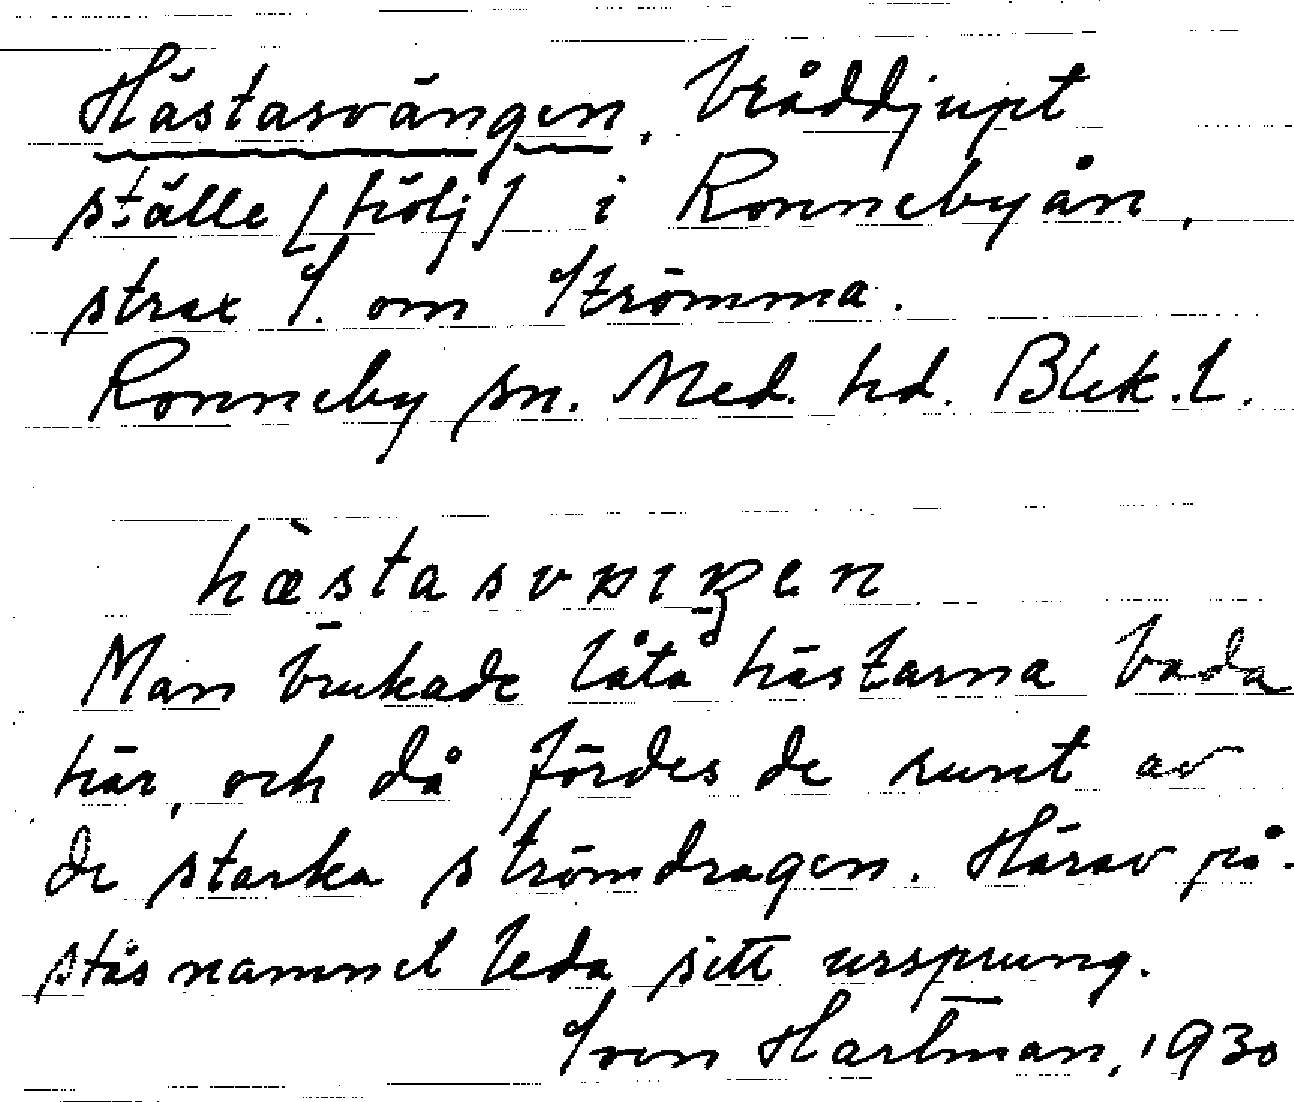 Hästasvängen. Bråddjupt
ställe [hölj] i Ronnebyån,
strax S. om Strömma.
Ronneby sn. Med. hd. Blek. l.
Man brukade låta hästarna bada
här, och då fördes de runt av
de starka strömdragen. Härav på-
stås namnet leda sitt ursprung.
Sven Hartman, 1930